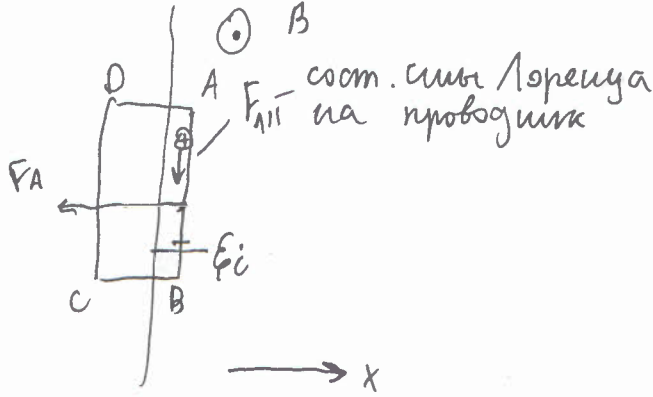 B
D
A
F_Л11 - сост. силы Лоренца
на проводник
F_A
ξi
C
B
X